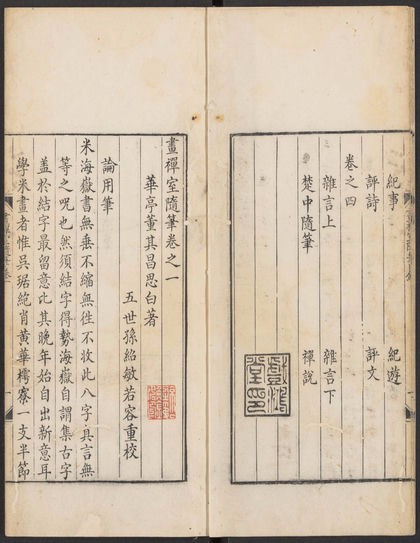 紀事 紀遊
評詩 評文
卷之四
雜言上 雜言下
楚中隨筆 禪說
畫禪室隨筆卷之一
華亭董其昌思白著
五世孫紹敏若容重校
論用筆
米海嶽書無垂不縮無徃不收此八字具言無
等之呪也然須結字得勢海嶽自謂集古字
蓋於結字最留意比其晚年始自出新意耳
學米畫者惟吳琚絶肖黃華樗寮一支半節